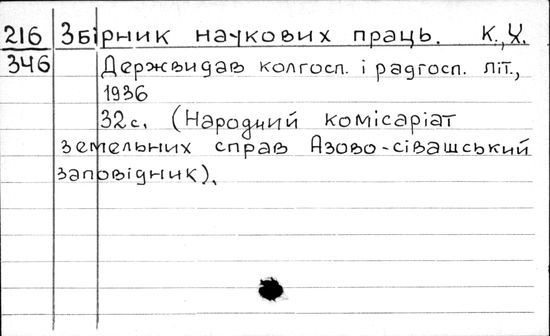 216 Збірник наукових праць. К., Х.
346 Держвидав колгосп. і радгосп. літ.,
1936
32 с. (Народний комісаріат
земельних справ Азово-сівашський
заповідник).